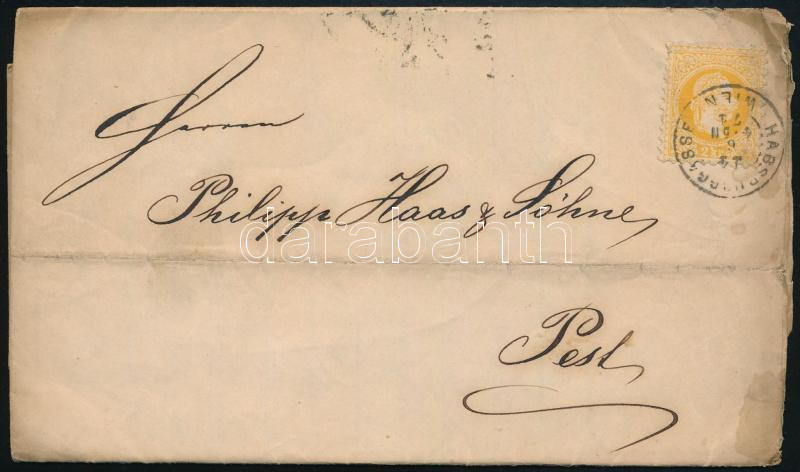 Herren
Philipp Haas & Söhne
Pest
WIEN HABSBURGGASSE
71
darabanth